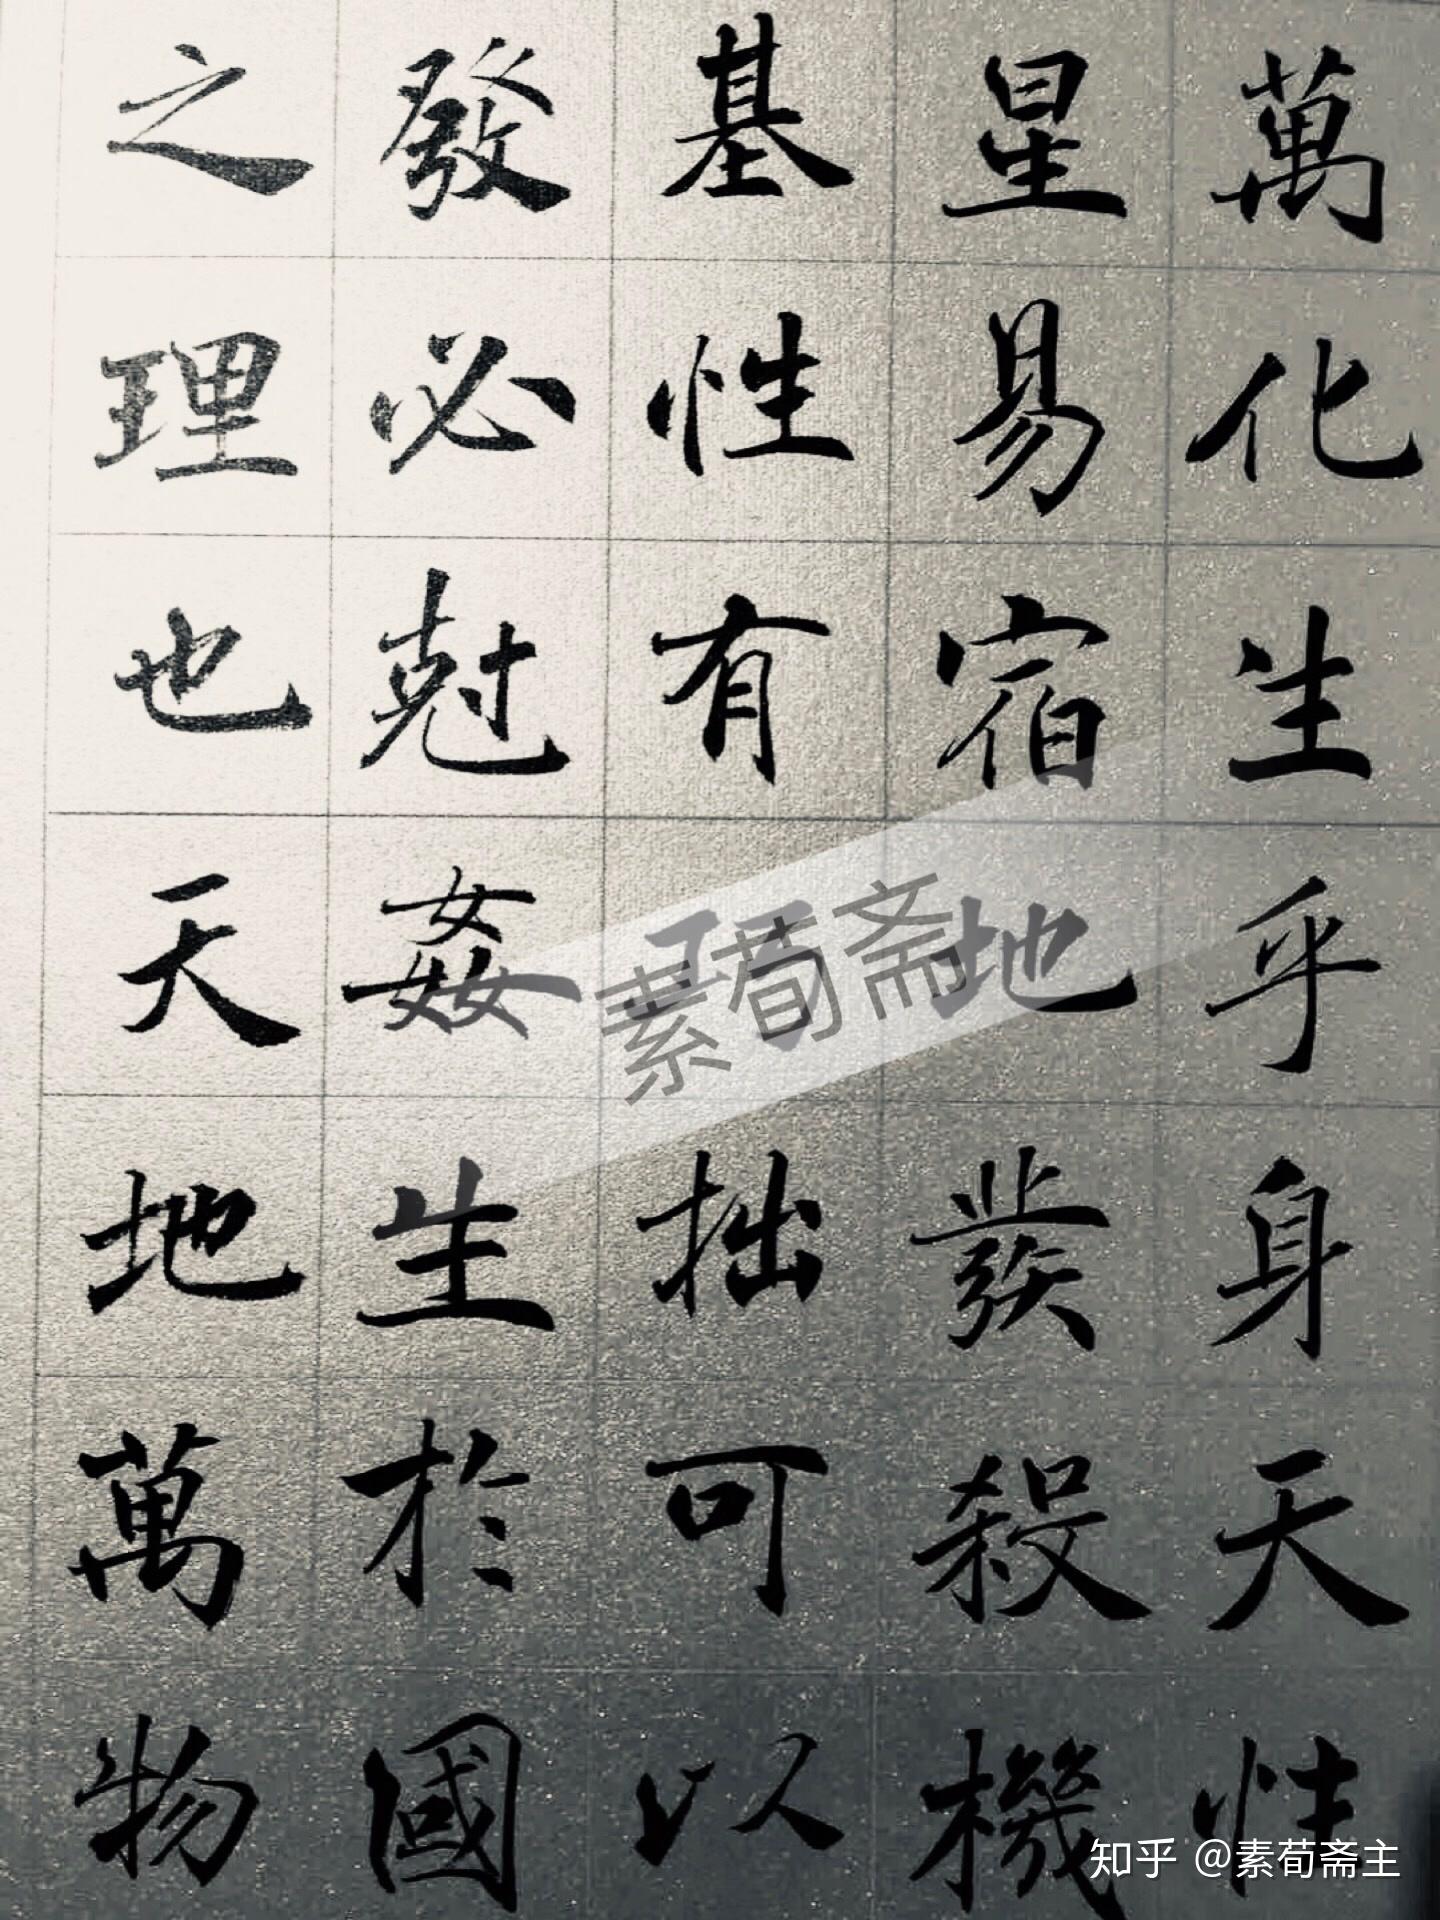 萬化生乎身天性
星易宿地發殺機
基性有巧拙可以
發必尅姦生於國
之理也天地萬物
素荀斋
知乎 @素荀斋主